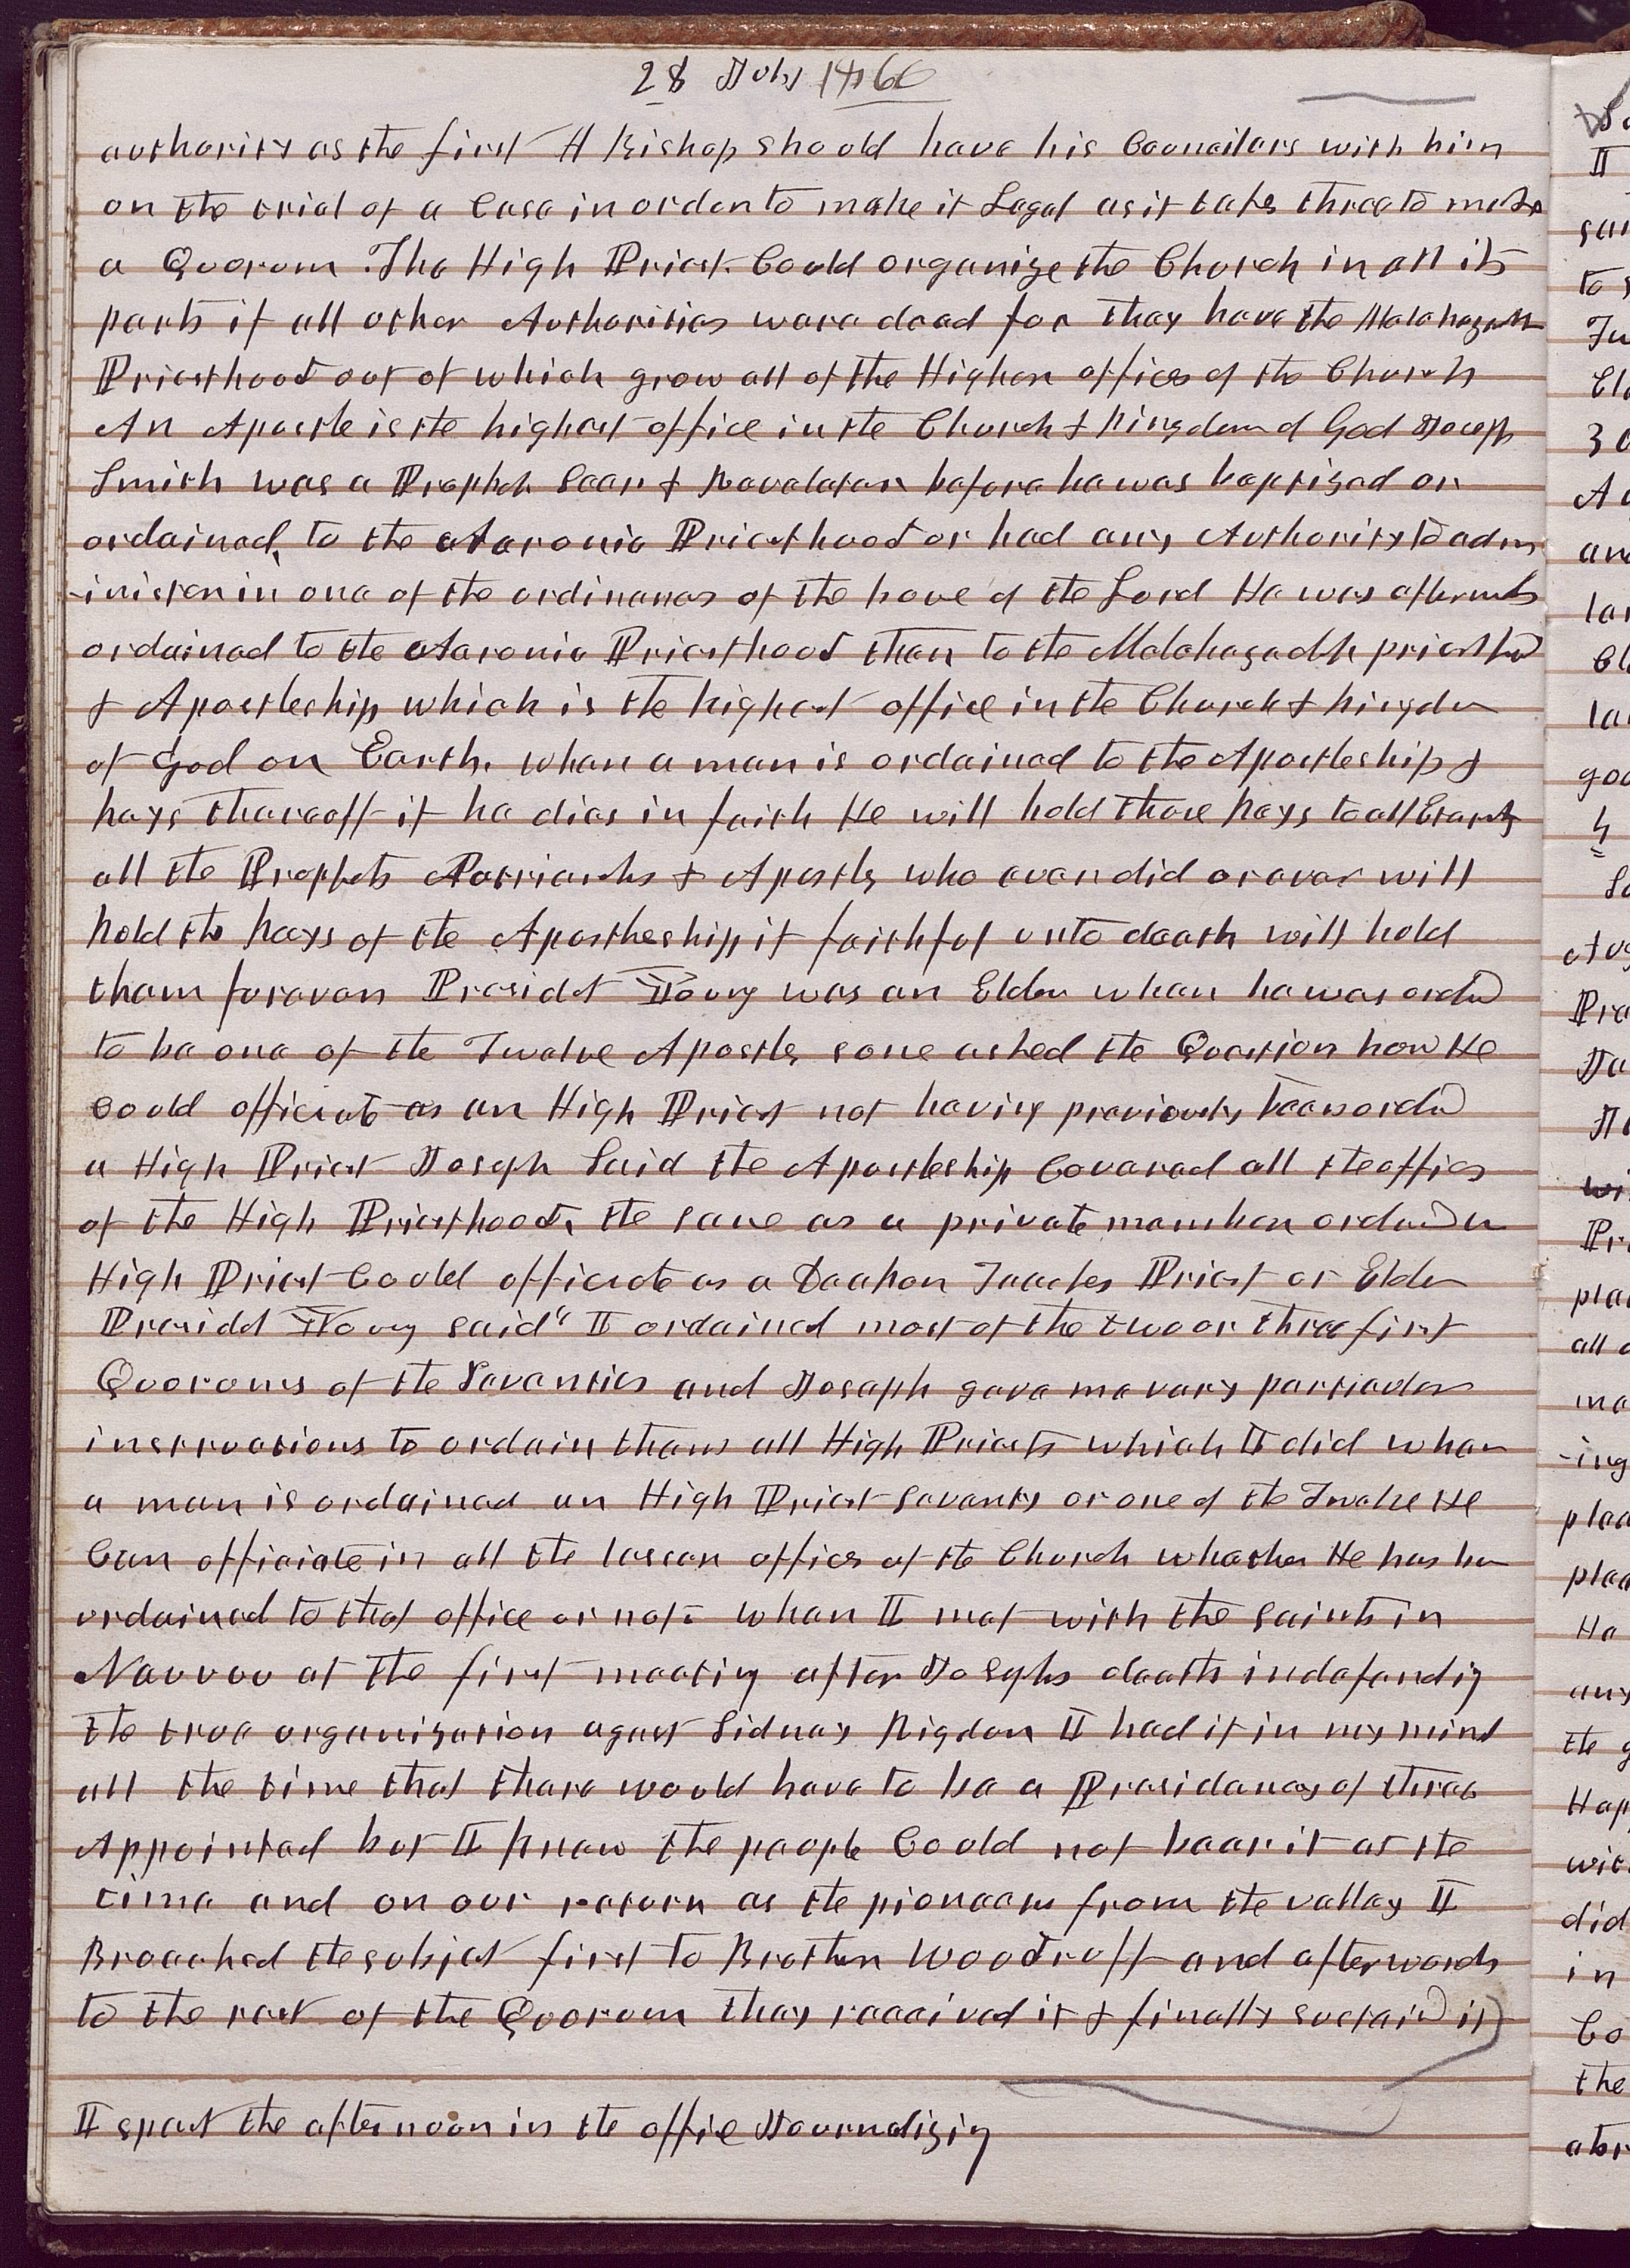 28 July 1866
authority as the first A Bishop should have his Councilors with him
on the trial of a Case in order to make it Legal as it takes three to make
a Quorum. The High Priest Could organize the Church in all its
parts if all other Authorities were dead for they have the Melchezedek
Priesthood out of which grow all of the Higher offices of the Church
An Apostle is the highest office in the Church & kingdom of God Joseph
Smith was a Prophet Seer & Revelator before he was baptized or
ordained, to the Aaronic Priesthood or had any Authority to adm
-inister in one of the ordinances of the house of the Lord He was afterwards
ordained to the Aaronic Priesthood then to the Melchezedek priesthood
& Apostleship which is the highest office in the Church & kingdom
of God on Earth. when a man is ordained to the Apostleship &
keys thereoff if he dies in faith He will hold those keys to all Eternity
all the Prophets Patriarchs & Apostls who ever did or ever will
hold the keys of the Apostleship if faithful unto death will hold
them forever Presidet Young was an Elder when he was ordnd
to be one of the Twelve Apostls some asked the Question how He
could officiate as an High Priest not having previously been ordnd
a High Priest Joseph Said the Apostleship Covered all the offices
of the High Priesthood, the same as a private member ordaind a
High Priest Could officiate as a Deacon Teacher Priest or Elder
Presidet Young said" I ordained most of the two or three first
Quorums of the Seventies and Joseph gave me very particular
instructions to ordain them all High Priests which I did when
a man is ordained an High Priest Seventy or one of the Twelve He
Can officiate in all the lesser offices of the Church whether He has been
ordained to that office or not= when I met with the Saints in
Nauvoo at the first meeting after Josephs death in defending
the true organization against Sidney Rigdon I had it in my mind
all the time that there would have to be a Presidency of three
Appointed but I knew the people Could not bear it at the
time and on our return as the pioneers from the valley I
Broached the subject first to Brother Woodruff and afterwards
to the rest of the Quorum they received it & finally sustaind it)
I spent the afternoon in the office Journalizing